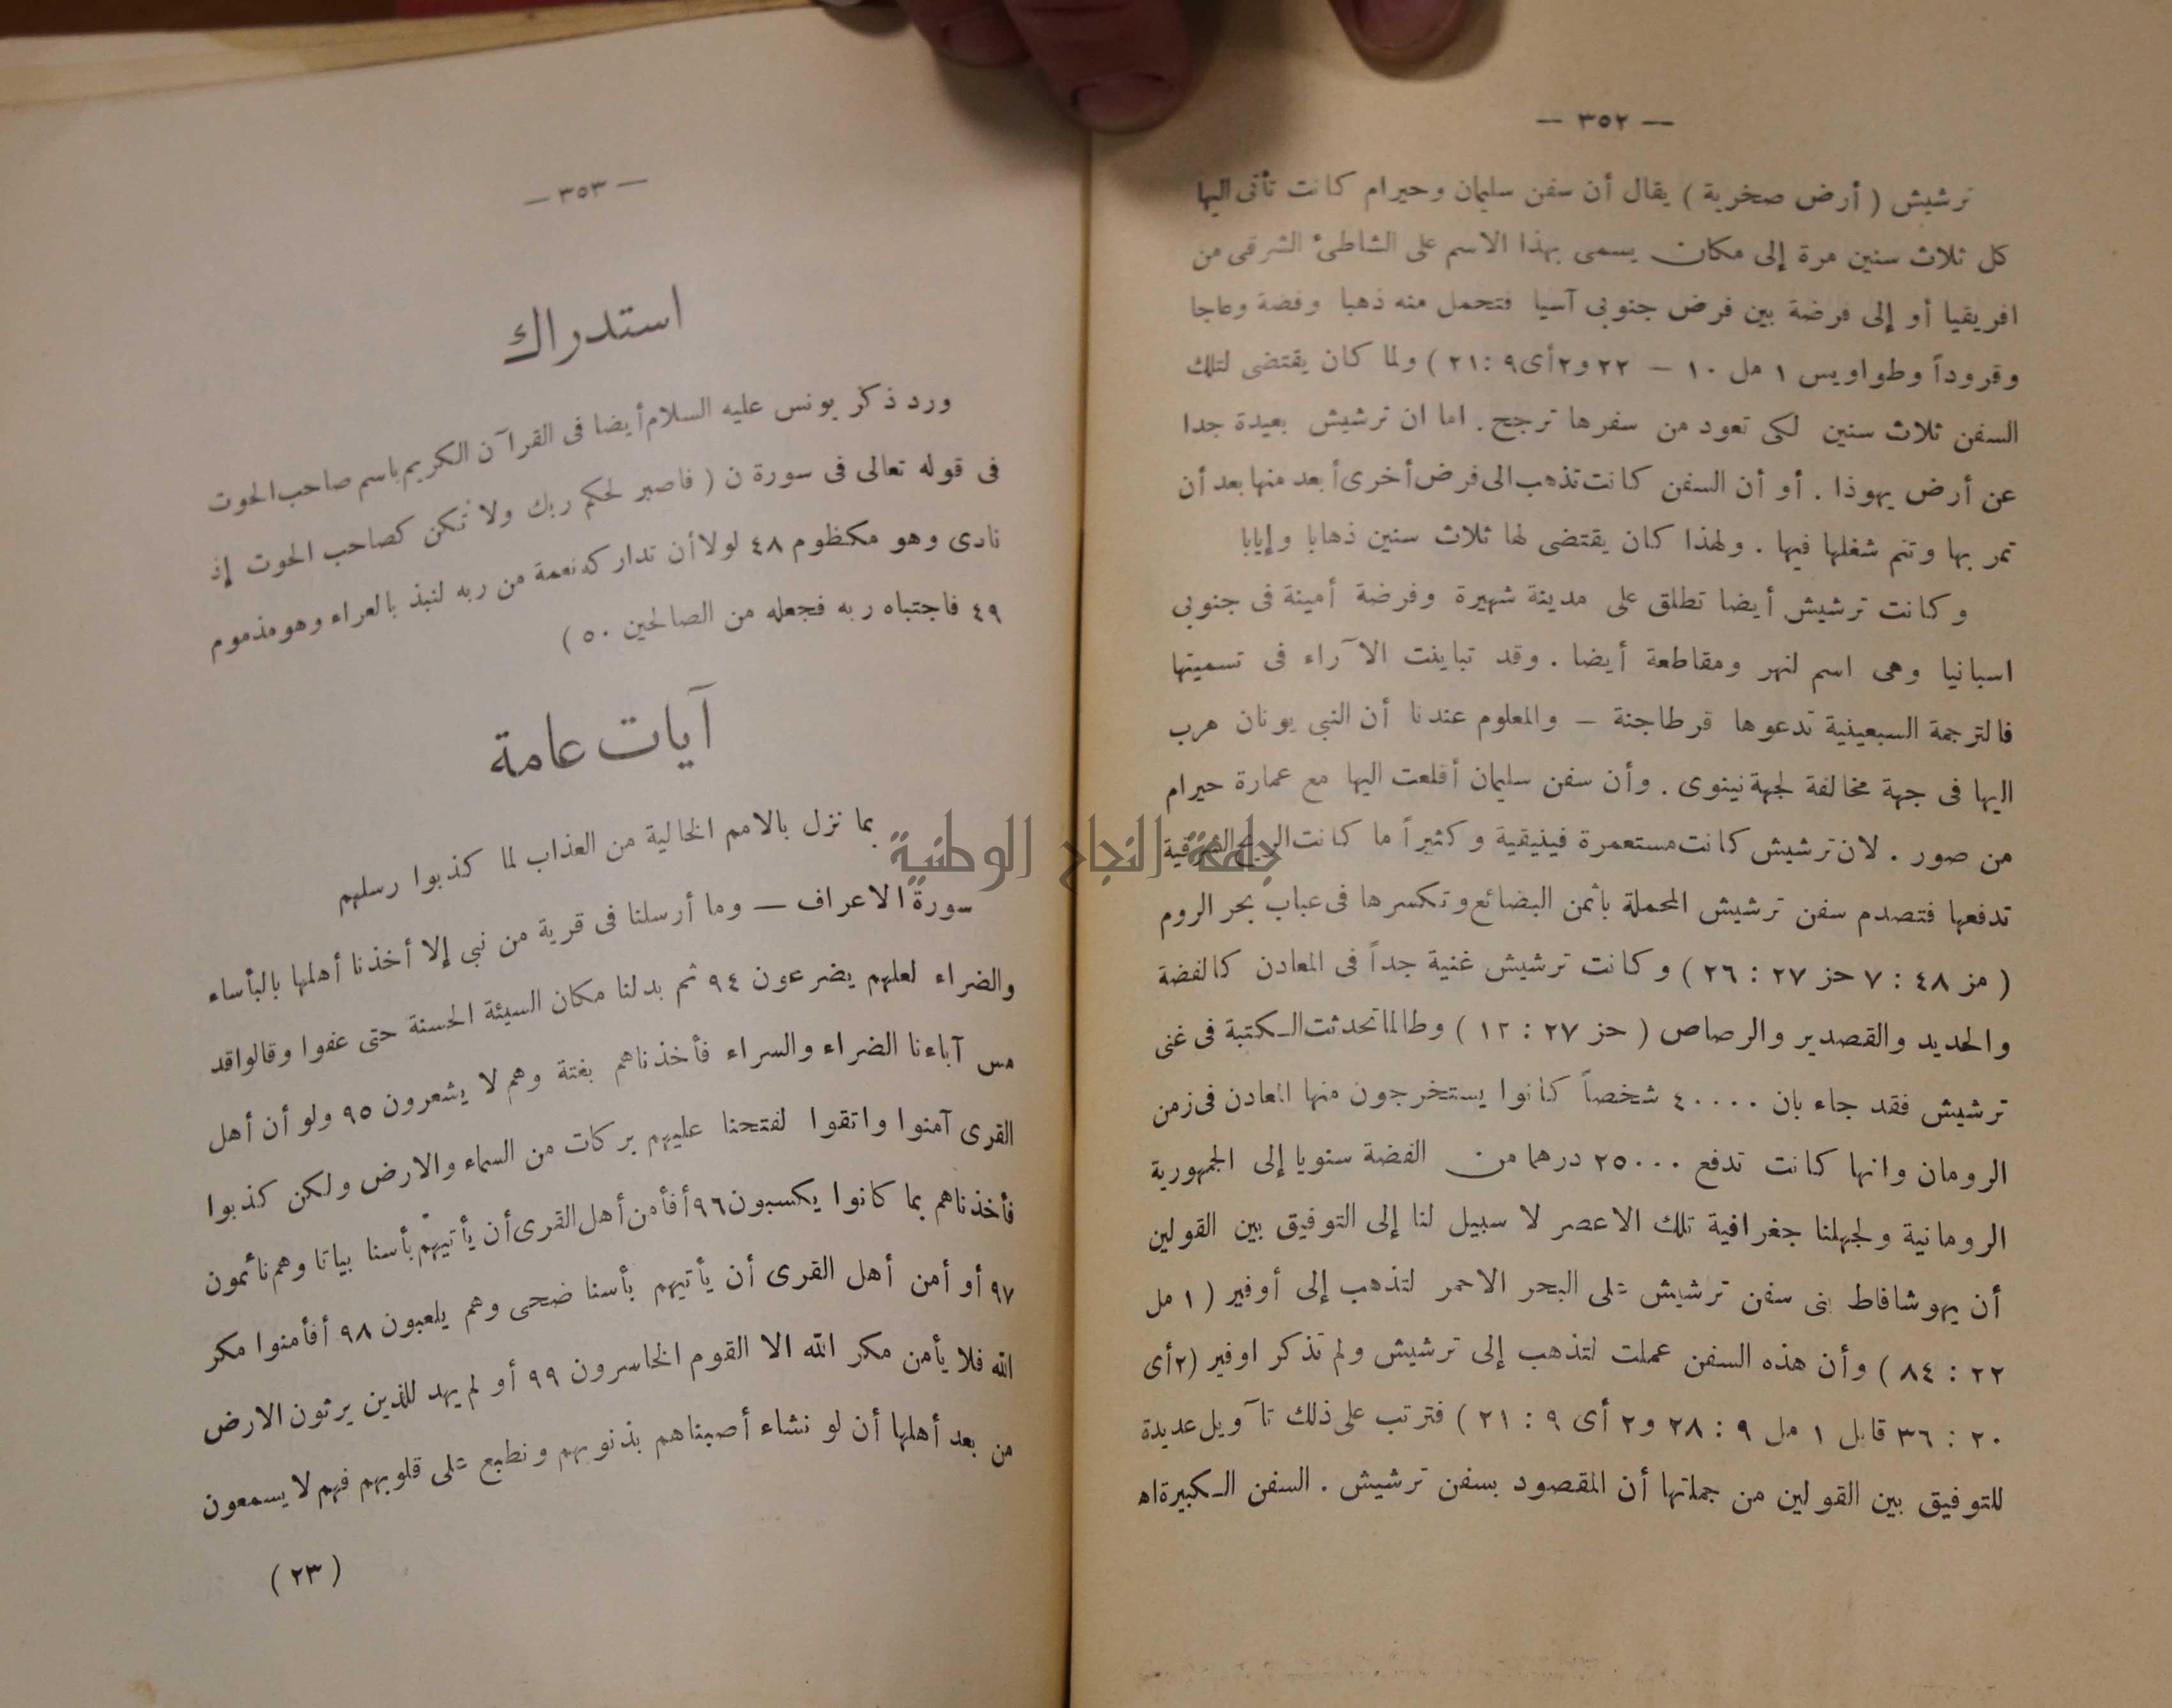 — ٣٥٢ —
ترشيش ( أرض صخرية ) يقال أن سفن سليمان وحيرام كانت تأتى اليها
كل ثلاث سنين مرة إلى مكان يسمى بهذا الاسم على الشاطئ الشرقى من
افريقيا أو إلى فرضة بين فرض جنوبى آسيا فتحمل منه ذهبا وفضة وعاجا
وقروداً وطواويس ١ مل ١٠ — ٢٢ و٢أى٩ :٢١ ) ولما كان يقتضى لتلك
السفن ثلاث سنين لكى تعود من سفرها ترجح . اما ان ترشيش بعيدة جدا
عن أرض يهوذا . أو أن السفن كانت تذهب الى فرض أخرى أبعد منها بعد أن
تمر بها وتتم شغلها فيها . ولهذا كان يقتضى لها ثلاث سنين ذهابا وإيابا
وكانت ترشيش أيضا تطلق على مدينة شهيرة وفرضة أمينة فى جنوبى
اسبانيا وهى اسم لنهر ومقاطعة أيضا . وقد تباينت الآراء فى تسميتها
فالترجمة السبعينية تدعوها قرطاجنة — والمعلوم عندنا أن النبى يونان هرب
اليها فى جهة مخالفة لجهة نينوى . وأن سفن سليمان أقلعت اليها مع عمارة حيرام
من صور . لان ترشيش كانت مستعمرة فينيقية وكثيراً ما كانت الريح الشرقية
تدفعها فتصدم سفن ترشيش المحملة باثمن البضائع وتكسرها فى عباب بحر الروم
( مز ٤٨ : ٧ حز ٢٧ : ٢٦ ) وكانت ترشيش غنية جداً فى المعادن كالفضة
والحديد والقصدير والرصاص ( حز ٢٧ : ١٢ ) وطالما تحدثت الكتبة فى غنى
ترشيش فقد جاء بان ٤٠٠٠٠ شخصاً كانوا يستخرجون منها المعادن فى زمن
الرومان وانها كانت تدفع ٢٥٠٠٠ درهما من الفضة سنويا إلى الجمهورية
الرومانية ولجهلنا جغرافية تلك الاعصر لا سبيل لنا إلى التوفيق بين القولين
أن يهوشافاط بنى سفن ترشيش على البحر الاحمر لتذهب إلى أوفير ( ١ مل
٢٢ : ٨٤ ) وأن هذه السفن عملت لتذهب إلى ترشيش ولم تذكر اوفير (٢أى
٢٠ : ٣٦ قابل ١ مل ٩ : ٢٨ و٢ أى ٩ : ٢١ ) فترتب على ذلك تآويل عديدة
للتوفيق بين القولين من جملتها أن المقصود بسفن ترشيش . السفن الكبيرة اه
— ٣٥٣ —
استدراك
ورد ذكر يونس عليه السلام أيضا فى القرآن الكريم باسم صاحب الحوت
فى قوله تعالى فى سورة ن ( فاصبر لحكم ربك ولا تكن كصاحب الحوت إذ
نادى وهو مكظوم ٤٨ لولا أن تداركه نعمة من ربه لنبذ بالعراء وهو مذموم
٤٩ فاجتباه ربه فجعله من الصالحين ٥٠ )
آيات عامة
بما نزل بالامم الخالية من العذاب لما كذبوا رسلهم
سورة الاعراف — وما أرسلنا فى قرية من نبى إلا أخذنا أهلها بالبأساء
والضراء لعلهم يضرعون ٩٤ ثم بدلنا مكان السيئة الحسنة حتى عفوا وقالوا قد
مس آباءنا الضراء والسراء فأخذناهم بغتة وهم لا يشعرون ٩٥ ولو أن أهل
القرى آمنوا واتقوا لفتحنا عليهم بركات من السماء والارض ولكن كذبوا
فأخذناهم بما كانوا يكسبون ٩٦ أفأمن أهل القرى أن يأتيهم بأسنا بياتا وهم نائمون
٩٧ أو أمن أهل القرى أن يأتيهم بأسنا ضحى وهم يلعبون ٩٨ أفأمنوا مكر
الله فلا يأمن مكر الله الا القوم الخاسرون ٩٩ أو لم يهد للذين يرثون الارض
من بعد أهلها أن لو نشاء أصبناهم بذنوبهم ونطبع على قلوبهم فهم لا يسمعون
( ٢٣ )
جامعة النجاح الوطنية